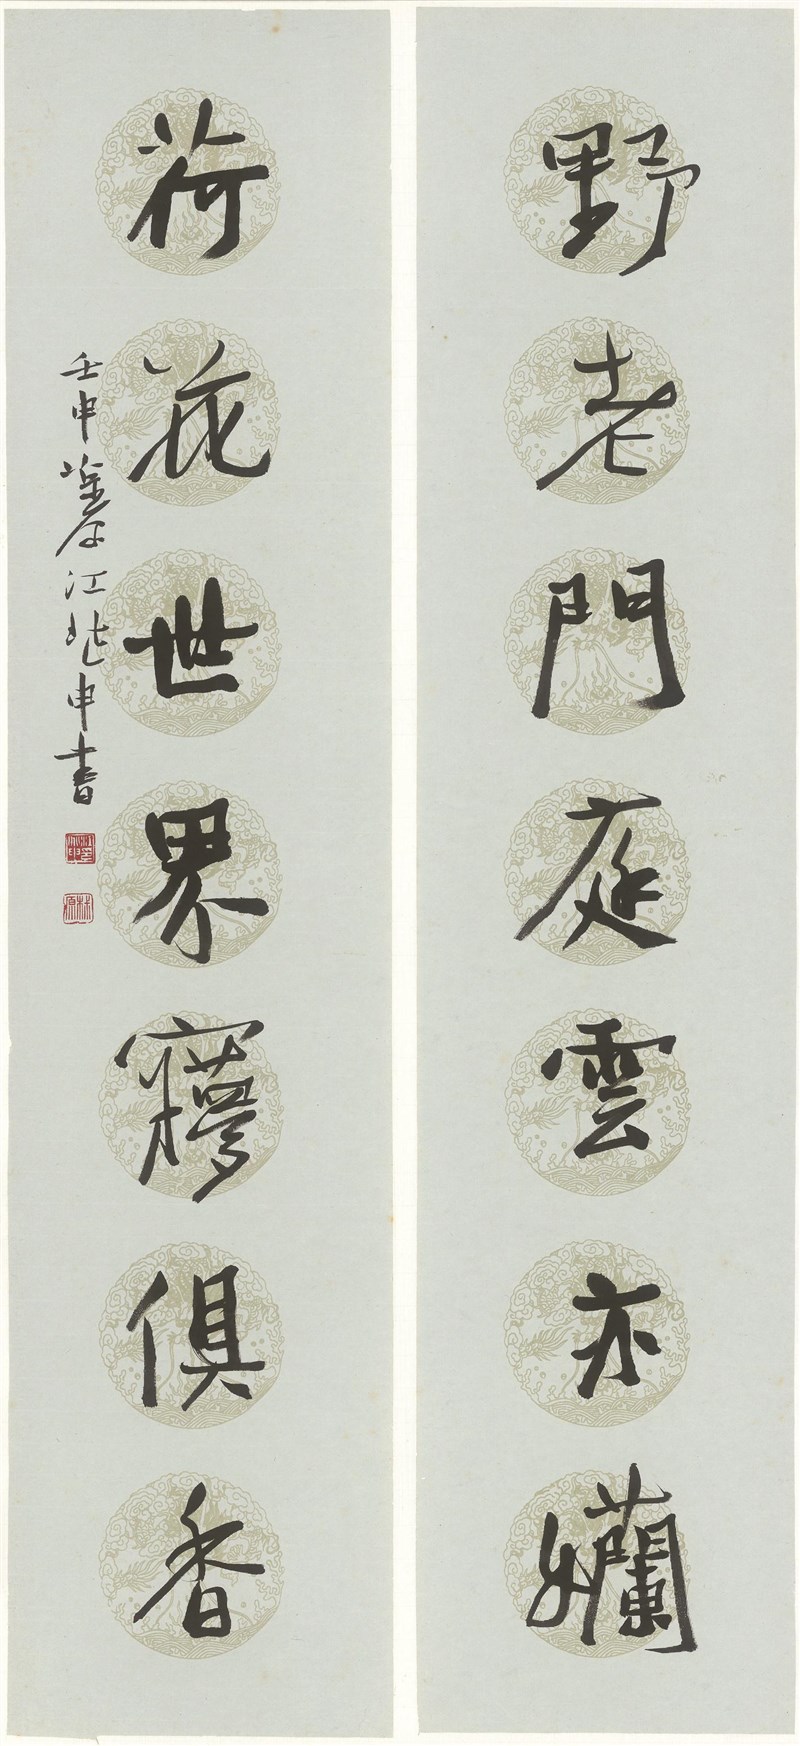 野老門庭雲亦孏
荷花世界㝱俱香
壬申江兆申書